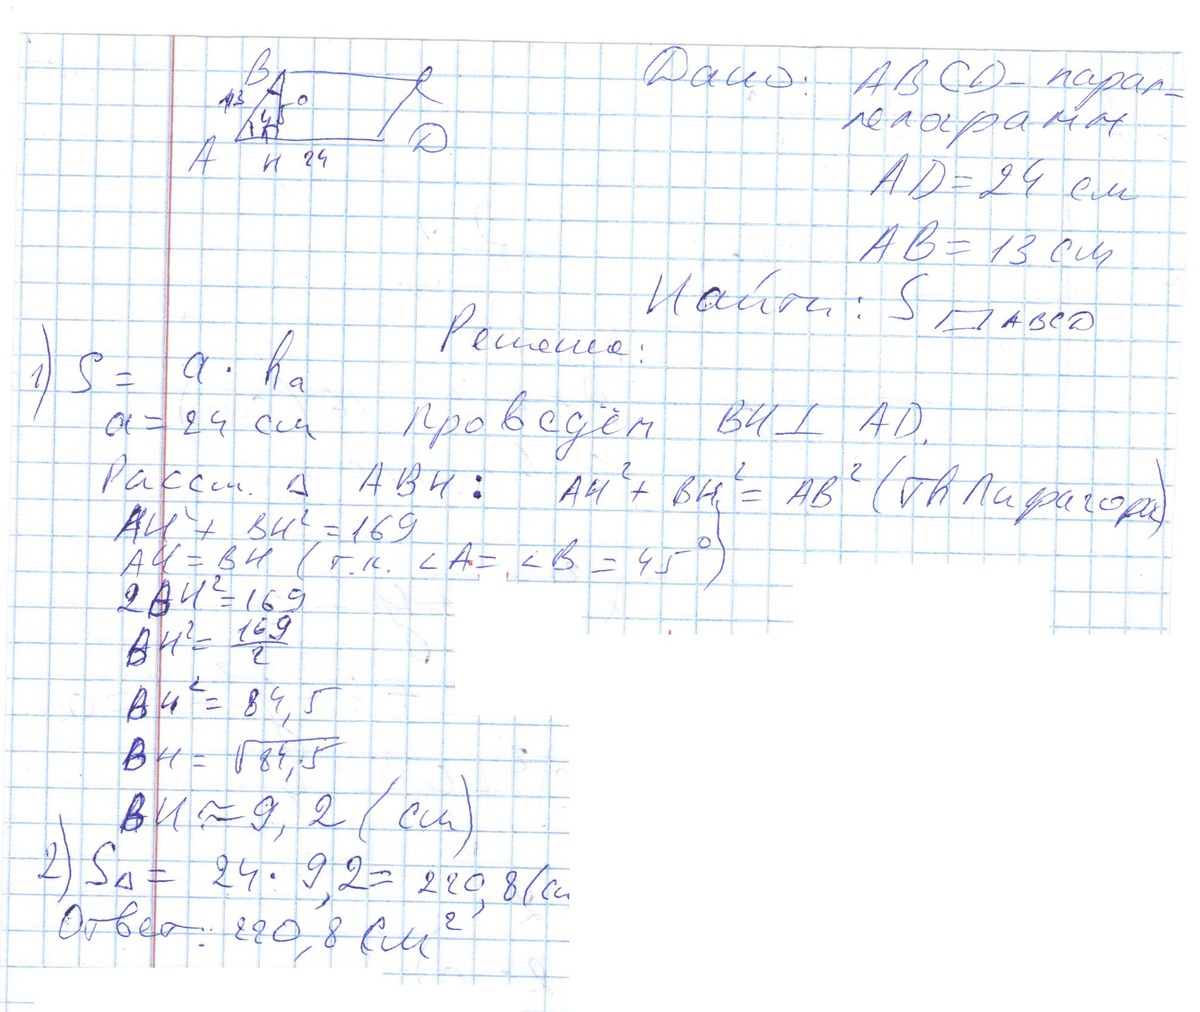 B C
13 45°
A H 24 D
Дано: ABCD - парал-
лелограмм
AD = 24 см
AB = 13 см
Найти: S▱ABCD
Решение:
1) S = a · hₐ
a = 24 см проведём BH ⊥ AD.
Рассм. △ ABH: AH² + BH² = AB² (Th Пифагора)
AH² + BH² = 169
AH = BH (т.к. ∠A = ∠B = 45°)
2BH² = 169
BH² = 169/2
BH² = 84,5
BH = √84,5
BH ≈ 9,2 (см)
2) S▵ = 24 · 9,2 = 220,8 (см
Ответ: 220,8 см²